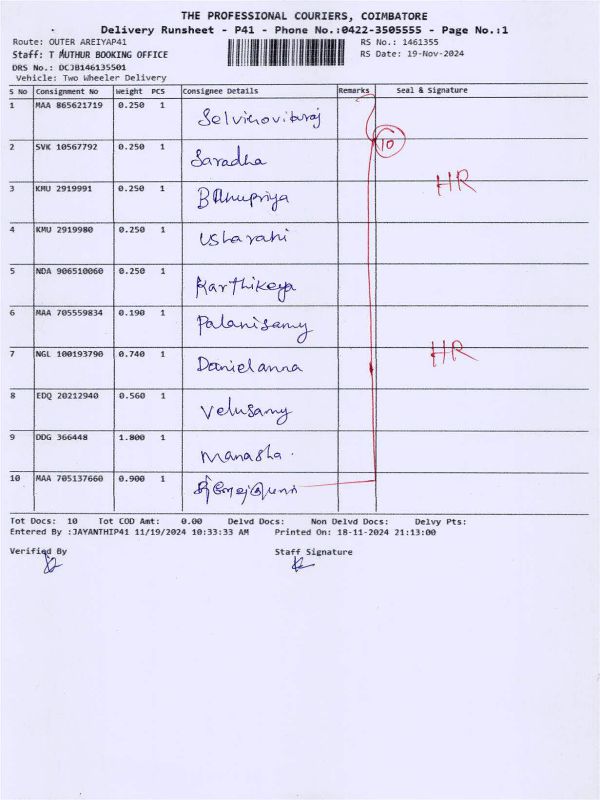 THE PROFESSIONAL COURIERS, COIMBATORE
Delivery Runsheet - P41 - Phone No.:0422-3505555 - Page No.:1
Route: OUTER AREIYAP41 RS No.: 1461355
Staff: T MUTHUR BOOKING OFFICE RS Date: 19-Nov-2024
DRS No.: DCJB146135501
Vehicle: Two Wheeler Delivery
S No Consignment No Weight PCS Consignee Details Remarks Seal & Signature
1 MAA 865621719 0.250 1
2 SVK 10567792 0.250 1 Saradha 10
3 KMU 2919991 0.250 1 Bhanupriya HR
4 KMU 2919980 0.250 1 Usharani
5 NDA 906510060 0.250 1 Karthikeya
6 MAA 705559834 0.190 1 Palanisamy
7 NGL 100193790 0.740 1 Danielanna HR
8 EDQ 20212940 0.560 1 Velusamy
9 DDG 366448 1.800 1 Manasha .
10 MAA 705137660 0.900 1
Tot Docs: 10 Tot COD Amt: 0.00 Delvd Docs: Non Delvd Docs: Delvy Pts:
Entered By :JAYANTHIP41 11/19/2024 10:33:33 AM Printed On: 18-11-2024 21:13:00
Verified By Staff Signature